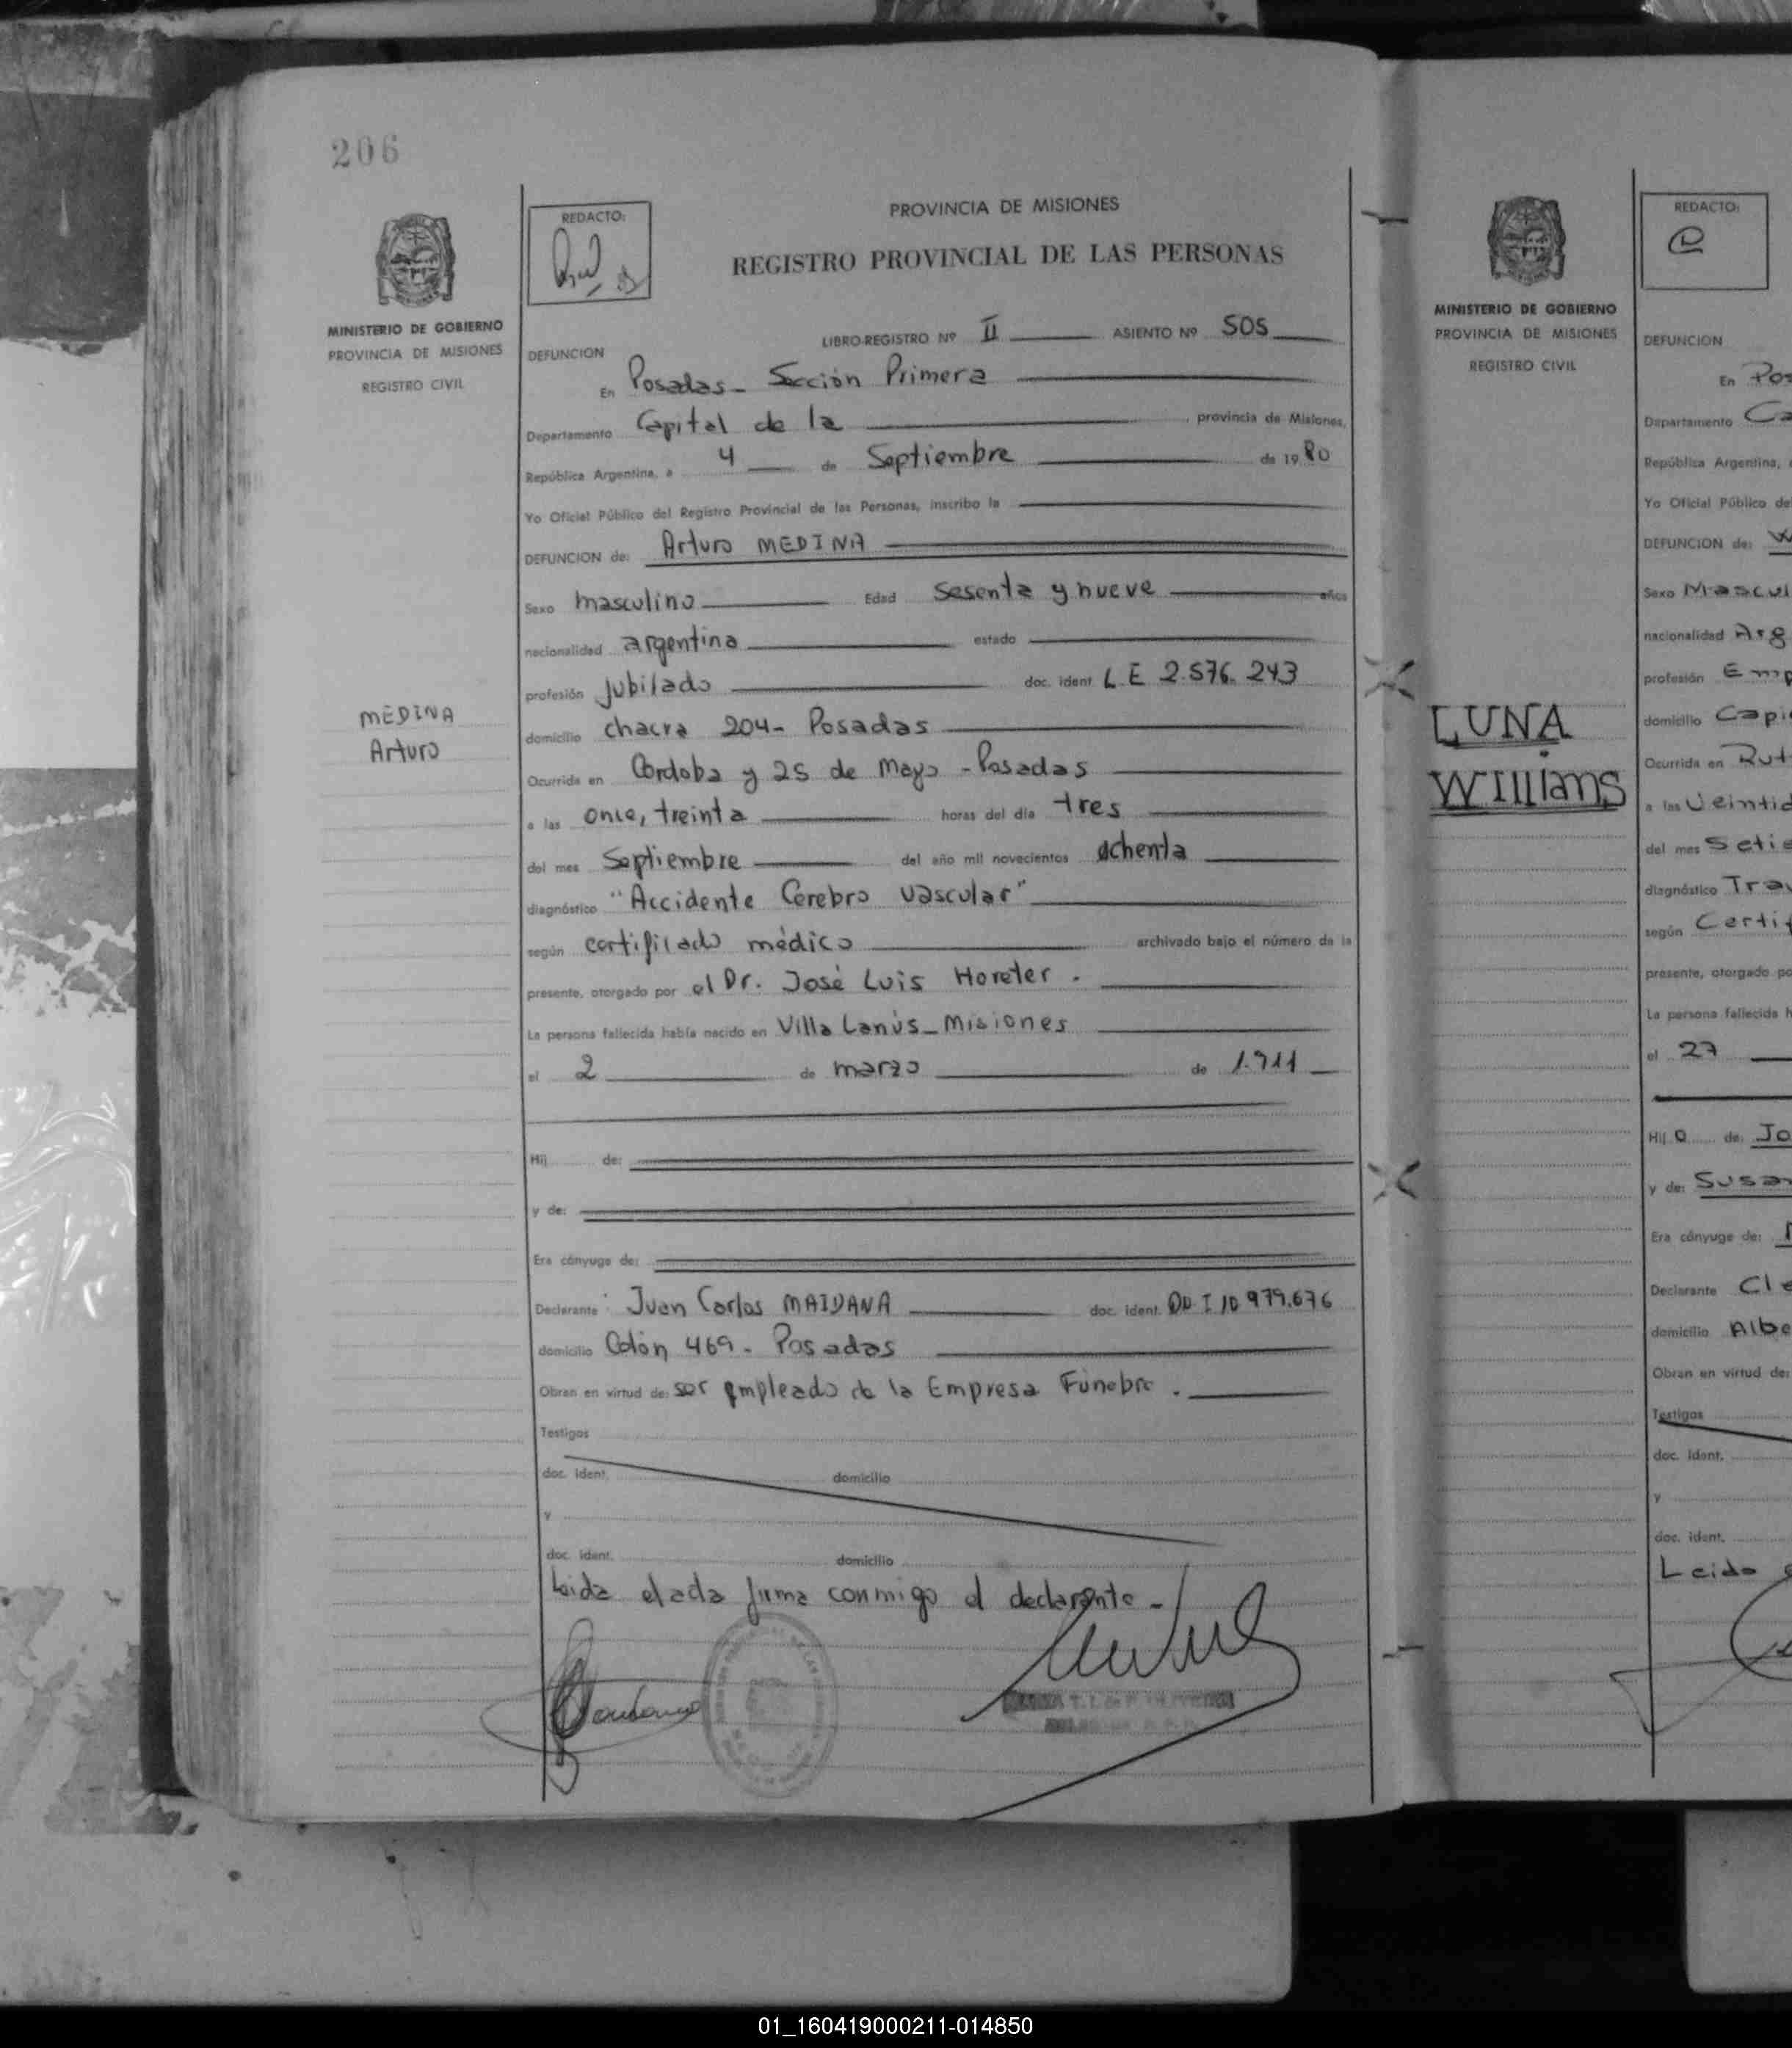 206
MINISTERIO DE GOBIERNO
PROVINCIA DE MISIONES
REGISTRO CIVIL
MEDINA
Arturo
REDACTO:
PROVINCIA DE MISIONES
REGISTRO PROVINCIAL DE LAS PERSONAS
LIBRO-REGISTRO Nº II ASIENTO Nº 505
DEFUNCION
En Posadas - Sección Primera
Departamento Capital de la provincia de Misiones,
República Argentina, a 4 de Septiembre de 1980
Yo Oficial Público del Registro Provincial de las Personas, inscribo la
DEFUNCION de: Arturo MEDINA
Sexo masculino Edad sesenta y nueve años
nacionalidad argentina estado
profesión jubilado doc. ident. L.E 2.576.243
domicilio chacra 204- Posadas
Ocurrida en Córdoba y 25 de Mayo - Posadas
a las once, treinta horas del día tres
del mes Septiembre del año mil novecientos ochenta
diagnóstico "Accidente Cerebro vascular"
según certificado médico archivado bajo el número de la
presente, otorgado por el Dr. José Luis Horeter.
La persona fallecida había nacido en Villa Lanús - Misiones
el 2 de marzo de 1.911
Hij de:
y de:
Era cónyuge de:
Declarante Juan Carlos MAIDANA doc. ident. D.N.I 10.979.676
domicilio Colón 469 - Posadas
Obran en virtud de: ser empleado de la Empresa Fúnebre.
Testigos
doc. ident. domicilio
y
doc. ident. domicilio
Leida el acta firma conmigo el declarante -
MINISTERIO DE GOBIERNO
PROVINCIA DE MISIONES
REGISTRO CIVIL
LUNA
Willians
REDACTO:
DEFUNCION
En Pos
Departamento Ca
República Argentina,
Yo Oficial Público de
DEFUNCION de: W
Sexo Mascul
nacionalidad Arg
profesión Emp
domicilio Capi
Ocurrida en Rut
a las Veintid
del mes Setie
diagnóstico Tra
según Certif
presente, otorgado po
La persona fallecida h
el 27
Hijo de: Jo
y de: Susan
Era cónyuge de:
Declarante Cle
domicilio Albe
Obran en virtud de:
Testigos
doc. ident.
y
doc. ident.
Leido
01_160419000211-014850